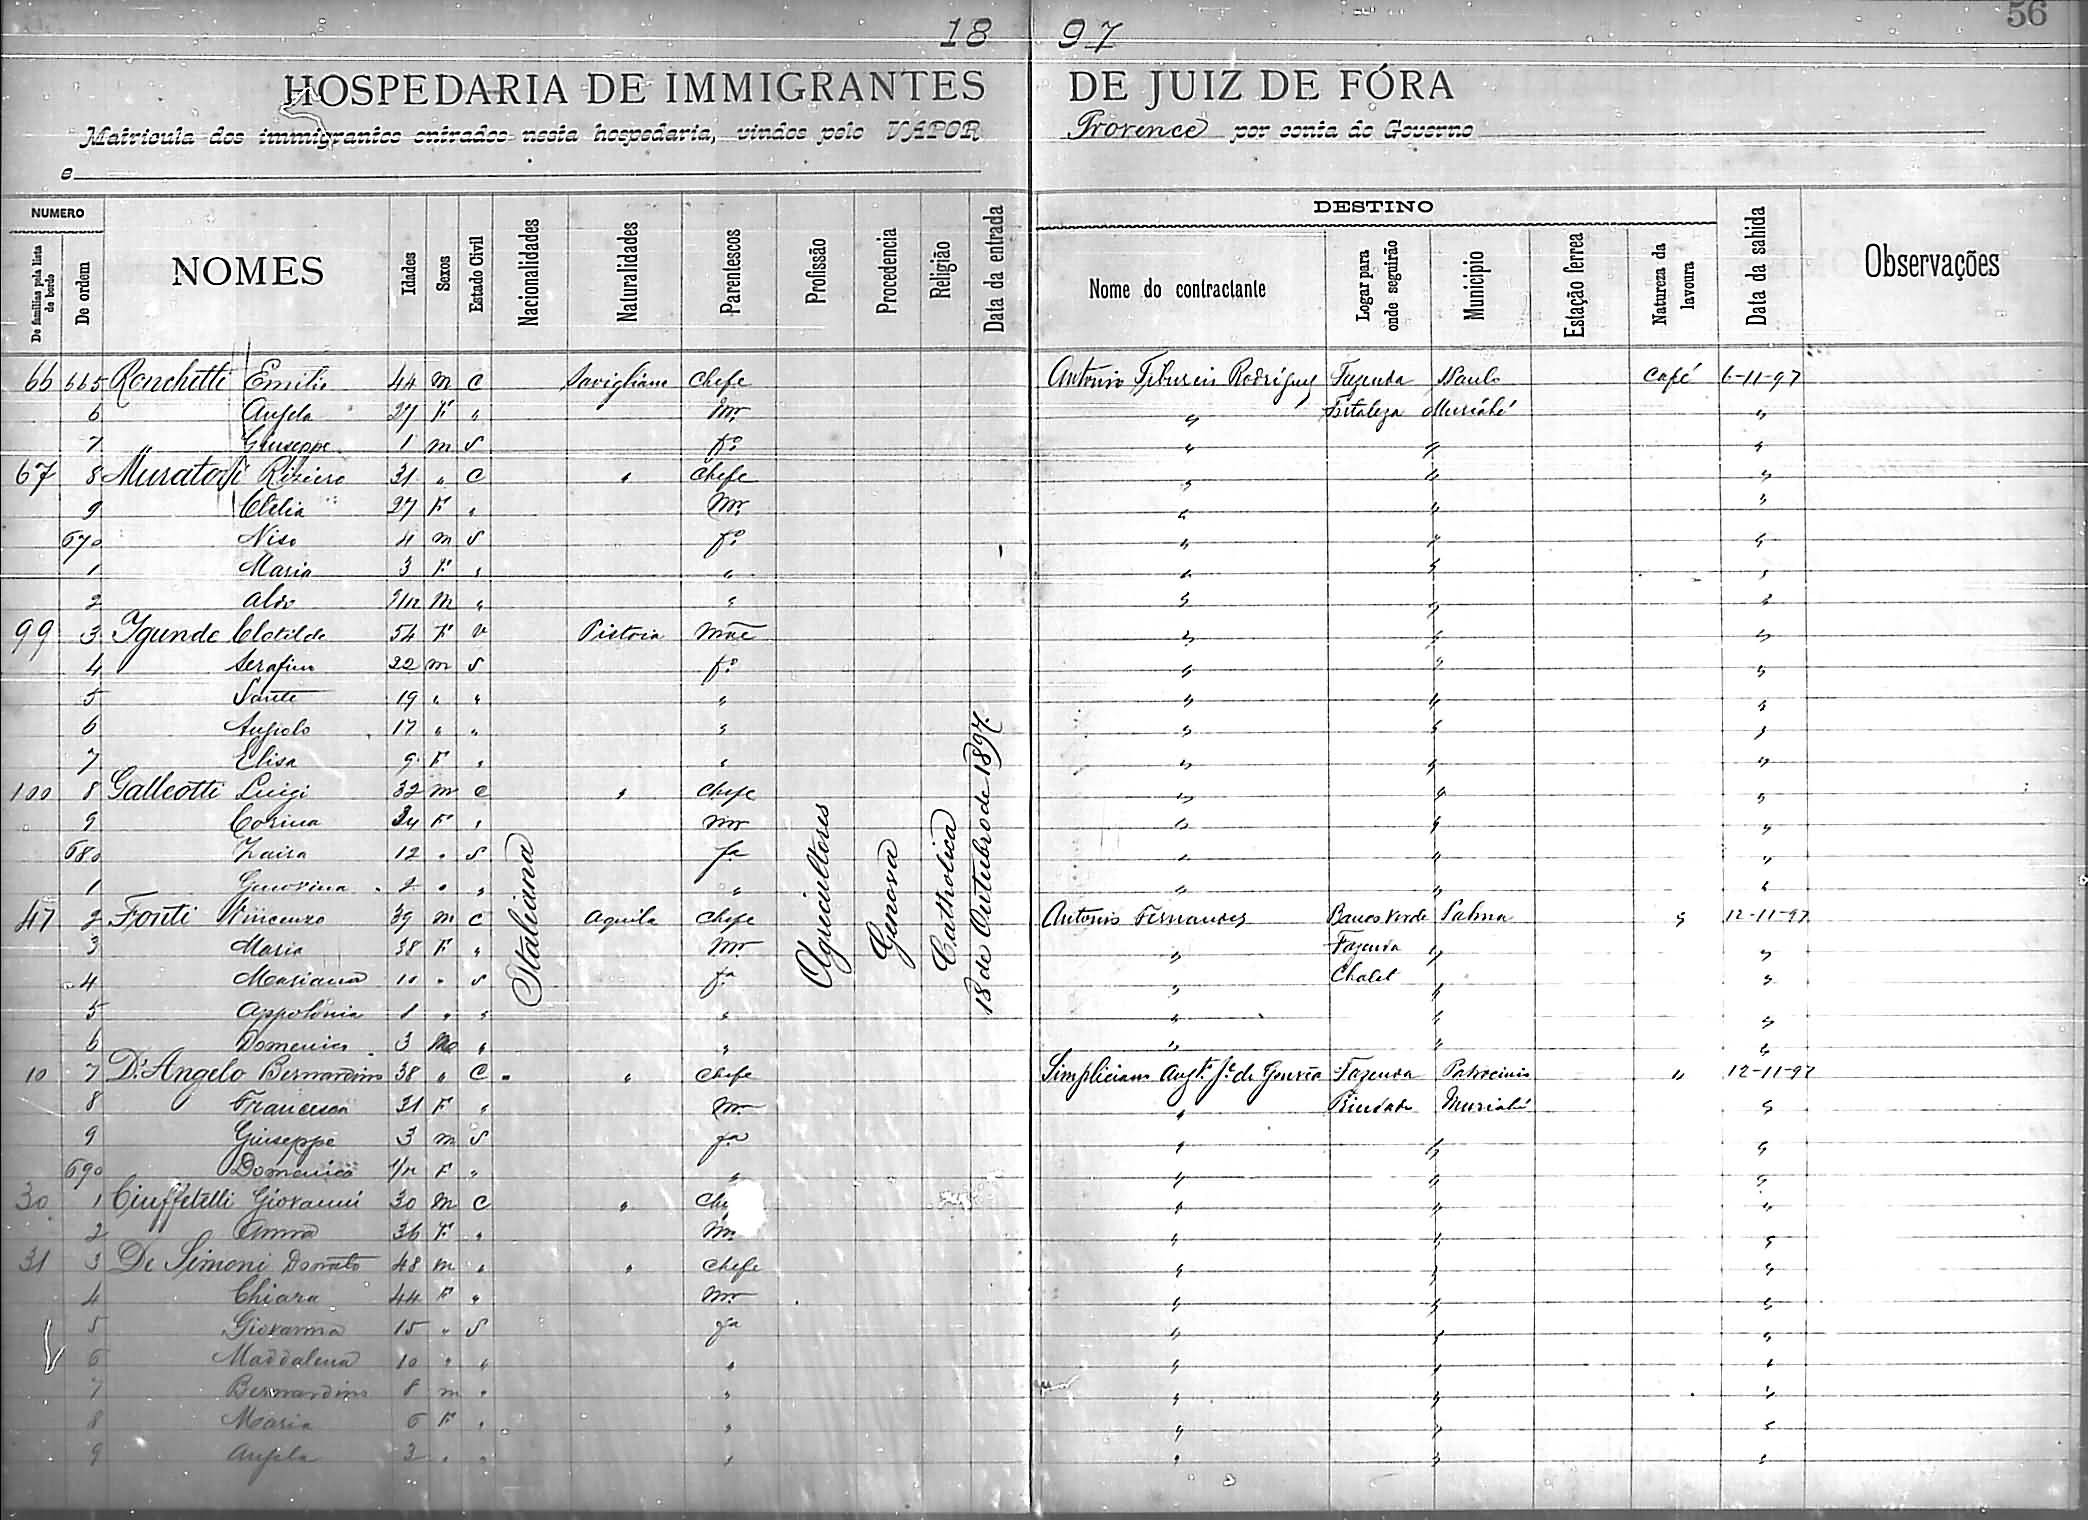 56
18 97
HOSPEDARIA DE IMMIGRANTES DE JUIZ DE FÓRA
Matricula dos immigrantes entrados nesta hospedaria, vindos pelo VAPOR Provence por conta do Governo
e
NUMERO DESTINO
De familias pela lista de bordo De ordem NOMES Idades Sexos Estado Civil Nacionalidades Naturalidades Parentescos Profissão Procedencia Religião Data da entrada Nome do contractante Logar para onde seguirão Municipio Estação ferrea Natureza da lavoura Data da sahida Observações
66 665 Ronchetti Emilio 44 m C Savigliano Chefe Antonio Tiburcio Rodrigues Fazenda S Paulo Café 6-11-97
6 Angela 27 F " Mr " Fortaleza Muriahé "
7 Giuseppe 1 m S fº " " "
67 8 Muratori Riziero 31 " C " Chefe " " "
9 Clelia 27 F " Mr " " "
670 Niso 4 m S fº " " "
1 Maria 3 F " " " " "
2 Aldo m " " " " "
99 3 Clotilde 54 F V Pistoia Mãe " " "
4 Serafino 22 m S fº " " "
5 Sante 19 " " " " " "
6 Angiolo 17 " " " " " "
7 Elisa 9 F " " " " "
100 8 Galleotti Luigi 32 m C " Chefe " " "
9 Corina 34 F " Mr " " "
680 Zaira 12 " S fa " " "
1 2 " " " " " "
47 2 Fonti Vincenzo 39 m C Aquila Chefe Antonio Fernandes Verde Palma " 12-11-97
3 Maria 38 F " Mr " Fazenda " "
4 Mariana 10 " S fa " Chalet " "
5 Appolonia " " " " " "
6 Domenico 3 M " " " " "
10 7 D'Angelo Bernardino 38 " C " " Chefe Simpliciano Augto Je de Gouvêa Fazenda Patrocinio " 12-11-97
8 Francesca 31 F " Mr " Muriahé "
9 Giuseppe 3 m S fa " " "
690 Domenica F " " " " "
30 1 Ciuffetelli Giovanni 30 m C " Che " " "
2 Anna 36 F " Mr " " "
31 3 De Simoni Donato 48 m " " Chefe " " "
4 Chiara 44 F " Mr " " "
5 Giovanna 15 " S fa " " "
6 Maddalena 10 " " " " " "
7 Bernardino 8 m " " " " "
8 Maria 6 F " " " " "
9 Angela 3 " " " " " "
Italiana
Agricultores
Genova
Catholica
18 de Outubro de 1897.